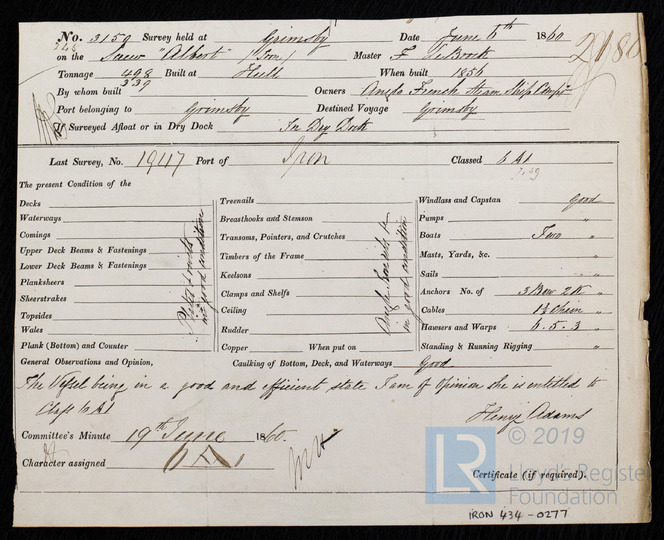 No. 3159 Survey held at Grimsby Date June 6th 1860
on the Screw "Albert" (Iron) Master F
Tonnage 498 Built at Hull When built 1856
339
By whom built Owners Anglo French Steam Ship Compy
Port belonging to Grimsby Destined Voyage Grimsby
If Surveyed Afloat or in Dry Dock In Dry Dock
Last Survey, No. 19117 Port of Iron Classed 6 A1
The present Condition of the
Decks
Waterways
Comings
Upper Deck Beams & Fastenings
Lower Deck Beams & Fastenings
Planksheers
Sheerstrakes
Topsides
Wales
Plank (Bottom) and Counter
Plates & rivets
in good condition
Treenails
Breasthooks and Stemson
Transoms, Pointers, and Crutches
Timbers of the Frame
Keelsons
Clamps and Shelfs
Ceiling
Rudder
Copper When put on
in good condition
Windlass and Capstan Good
Pumps "
Boats Two "
Masts, Yards, &c. "
Sails "
Anchors No. of 3 Bow 2 K "
Cables Chain "
Hawsers and Warps 6 . 5 . 3 "
Standing & Running Rigging "
General Observations and Opinion, Caulking of Bottom, Deck, and Waterways Good
The Vessel being in a good and efficient state I am of opinion she is entitled to
Class 6 A1
Henry Adams
Committee's Minute 19th June 1860.
Character assigned 6 A 1
Certificate (if required).
© 2019
LR
Lloyd's Register
Foundation
IRON 434-0277